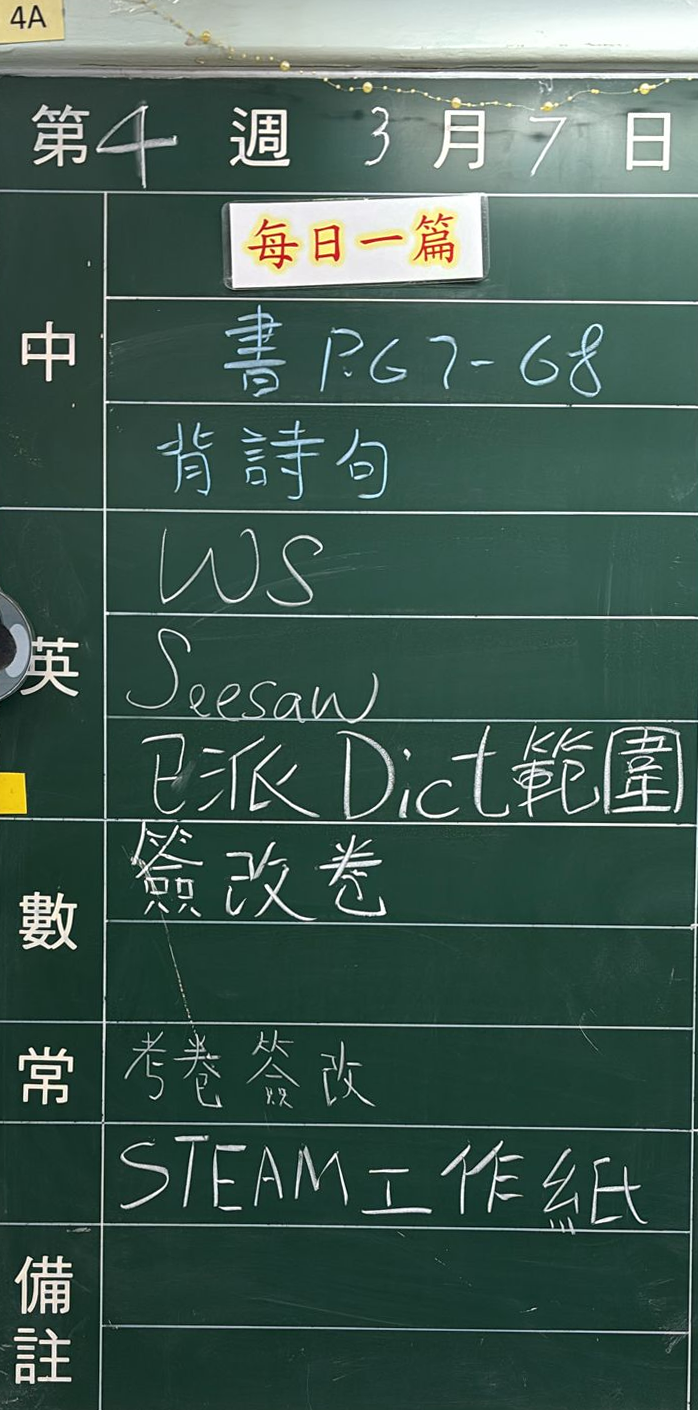 4A
第4週 3月7日
每日一篇
中
書 P.67-68
背詩句
WS
英
Seesaw
已派 Dict 範圍
數
簽改卷
常
考卷簽改
STEAM工作紙
備註